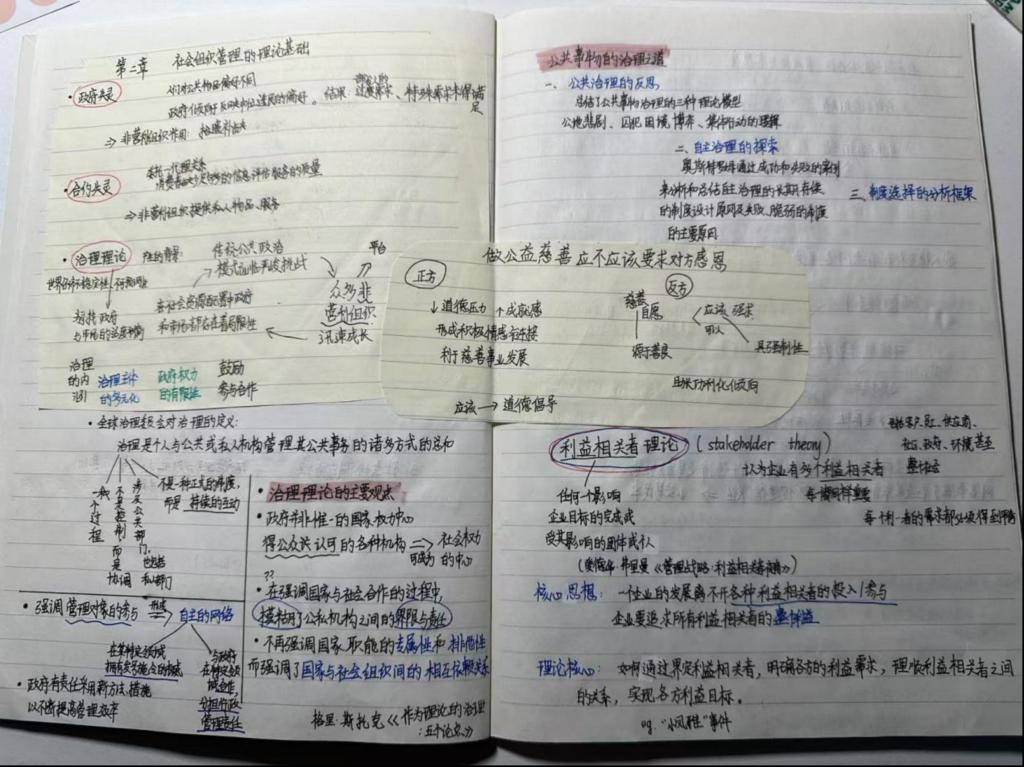 第二章 社会组织管理的理论基础
· 政府失灵
人们对公共物品偏好不同
政府倾向于反映中位选民的偏好。结果:过度需求、特殊需求未得满足
⇒ 非营利组织作用:拾遗补缺
委托—代理关系
· 合约失灵
消费者缺少足够的信息评估服务的质量
⇒ 非营利组织提供私人物品、服务
· 治理理论
产生的背景
传统公共政治
模式面临严峻挑战
平台
众多非
营利组织
迅速成长
世界的不稳定性
在社会资源配置中政府
和市场都存在着局限性
治理
的内
涵
治理主体
的多元化
政府权力
的有限性
鼓励
参与合作
· 全球治理委员会对治理的定义:
治理是个人与公共或私人机构管理其公共事务的诸多方式的总和
一种
不是
过程
不是控制
而是
协调
涉及公共部门,
也包括
私部门
不是一种正式的制度,
而是 持续的互动
· 强调管理对象的参与
自主的网络
在某种定领域
与政府
在特定领域
合作,
分担行政
管理责任
· 政府有责任采用新方法、措施
以不断提高管理效率
· 治理理论的主要观点
· 政府并非惟一的国家权力中心
得公众共认可的各种机构 ⇒ 社会权力
可成为 的中心
??
· 在强调国家与社会合作的过程中,
模糊了公私机构之间的界限与责任
· 不再强调国家职能的专属性和排他性
而强调了国家与社会组织间的相互依赖关系
格里·斯托克《作为理论的治理
:五个论点》
做公益慈善应不应该要求对方感恩
正方
↓道德压力 ↑成就感
形成积极情感连接
利于慈善事业发展
应该 → 道德倡导
反方
慈善
自愿
源于善良
应该 强求
具强制性
功利化倾向
公共事物的治理之道
一、公共治理的反思
总结了公共事物治理的三种理论模型
公地悲剧、囚犯困境博弈、集体行动的逻辑
二、自主治理的探索
奥斯特罗姆通过成功和失败的案例
来分析和总结自主治理的长期存续
的制度设计原则及失败、脆弱的制度
的主要原因
三、制度选择的分析框架
利益相关者理论 (stakeholder theory)
认为企业有多个利益相关者
客户、员工、供应商、
社区、政府、环境甚至
整个社会
每个都同样重要
任何一个影响
企业目标的完成或
受其影响的团体或个人
(爱德华·弗里曼《管理战略:利益相关者方法》)
核心思想: 一个企业的发展离不开各种利益相关者的投入/参与
企业要追求所有利益相关者的整体利益
理论核心: 如何通过界定利益相关者,明确各方的利益需求,理顺利益相关者之间
的关系,实现各方利益目标。
eg. "小凤雅"事件